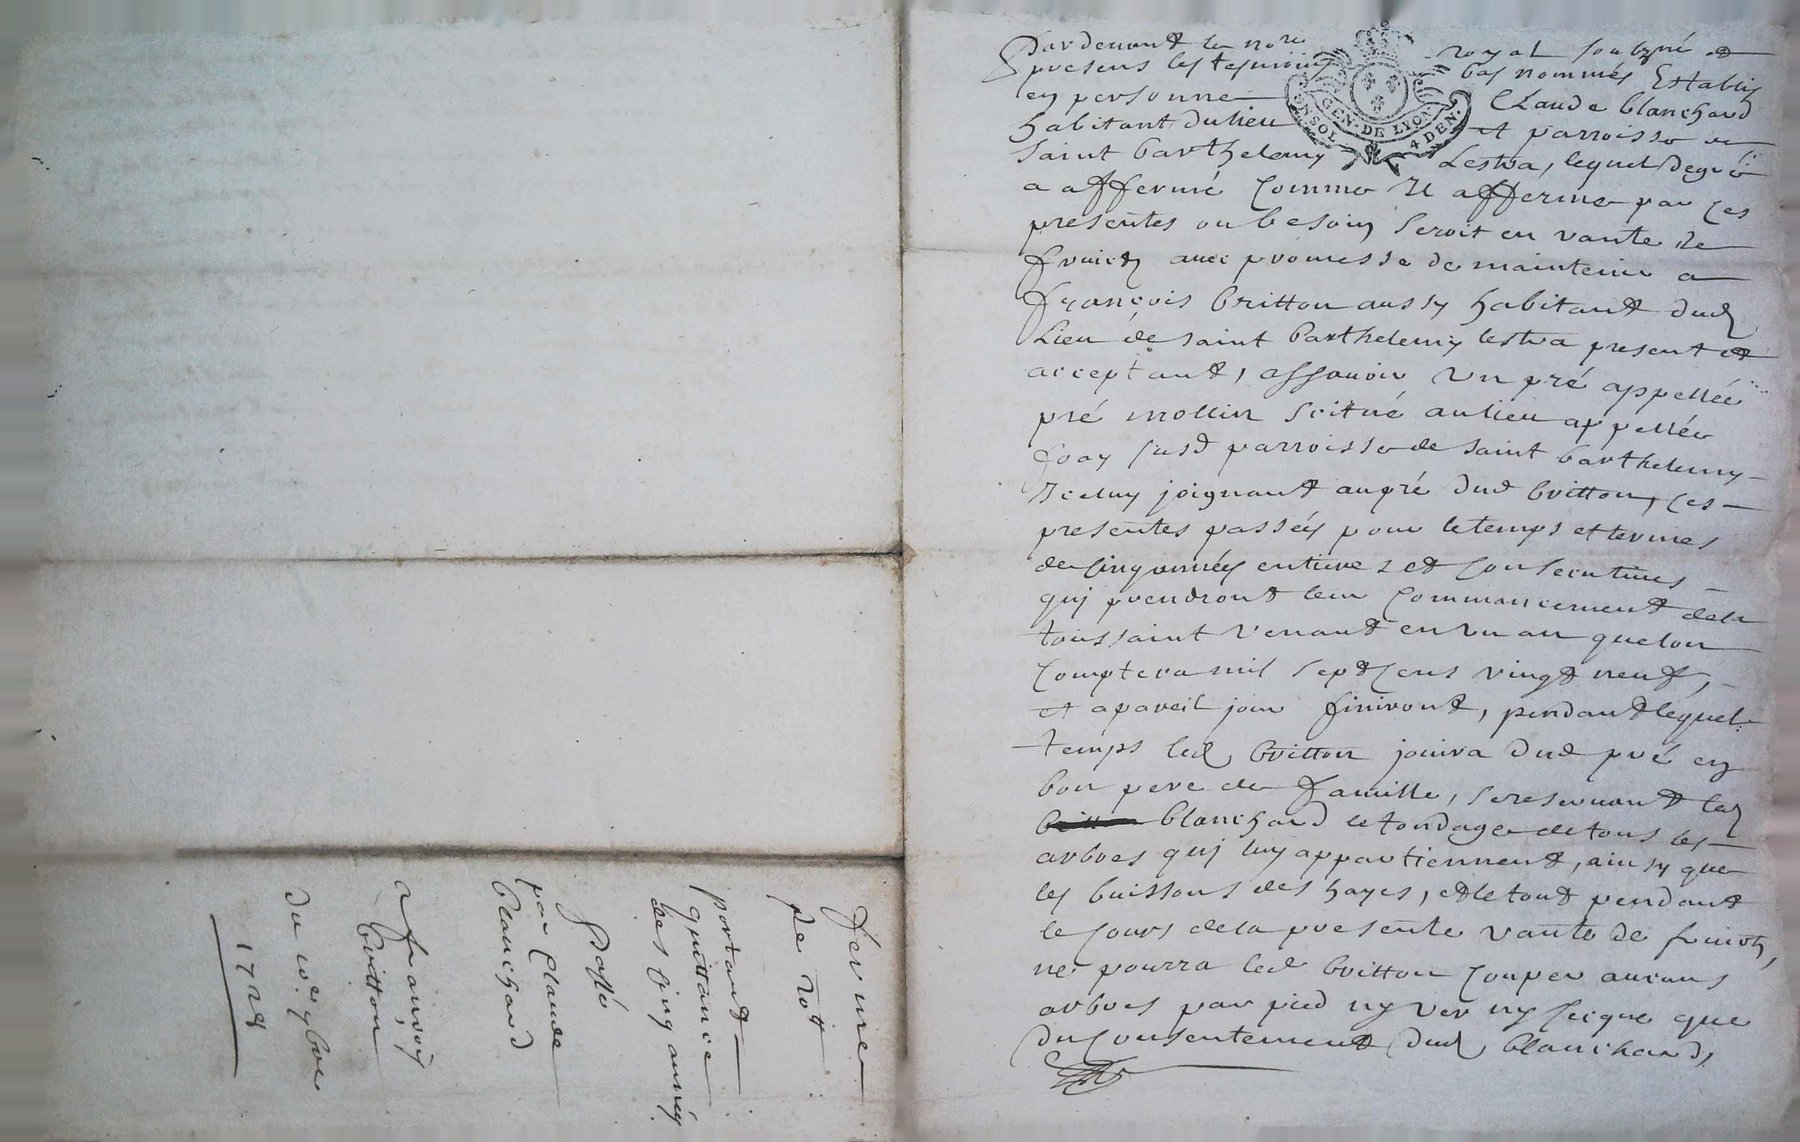 Pardevant le nore royal soubzné et
presens les tesmoins bas nommés Establis
en personne Claude blanchard
habitant du lieu et parroisse de
saint barthelemy Lestra, lequel de gré
a affermé comme Il afferme par ces
presentes ou besoin seroit en vante de
fruicts avec promesse de maintenir a
françois britton aussy habitant dud
Lieu de saint barthelemy lestra present et
acceptant, assavoir Un pré appellée
pré mollin scitué au lieu appellée
susd parroisse de saint barthelemy
Iceluy joignant au pré dud britton, ces
presentes passées pour le temps et termes
de cinq années entieres et consecutives
qui prendront leur commancement de la
toussaint venant en un an que lon
comptera mil sept cens vingt neuf,
et a pareil jour finiront, pendant lequel
temps led britton jouira dud pré en
bon pere de famille, se reservant led
blanchard le tondage de tous les
arbres qui luy appartiennent, ainsy que
les buissons des hayes, et le tout pendant
le cours de la presente vante de fruicts,
ne pourra led britton couper aucuns
arbres par pied ny ver ny secque que
du consentement dud blanchard,
GEN. DE LYON.
UN. SOL 4 DEN.
ferme
de 20lt
portant
quittance
des cinq années
Passé
par Claude
blanchard
a françois
britton
du 10e xbre
1728